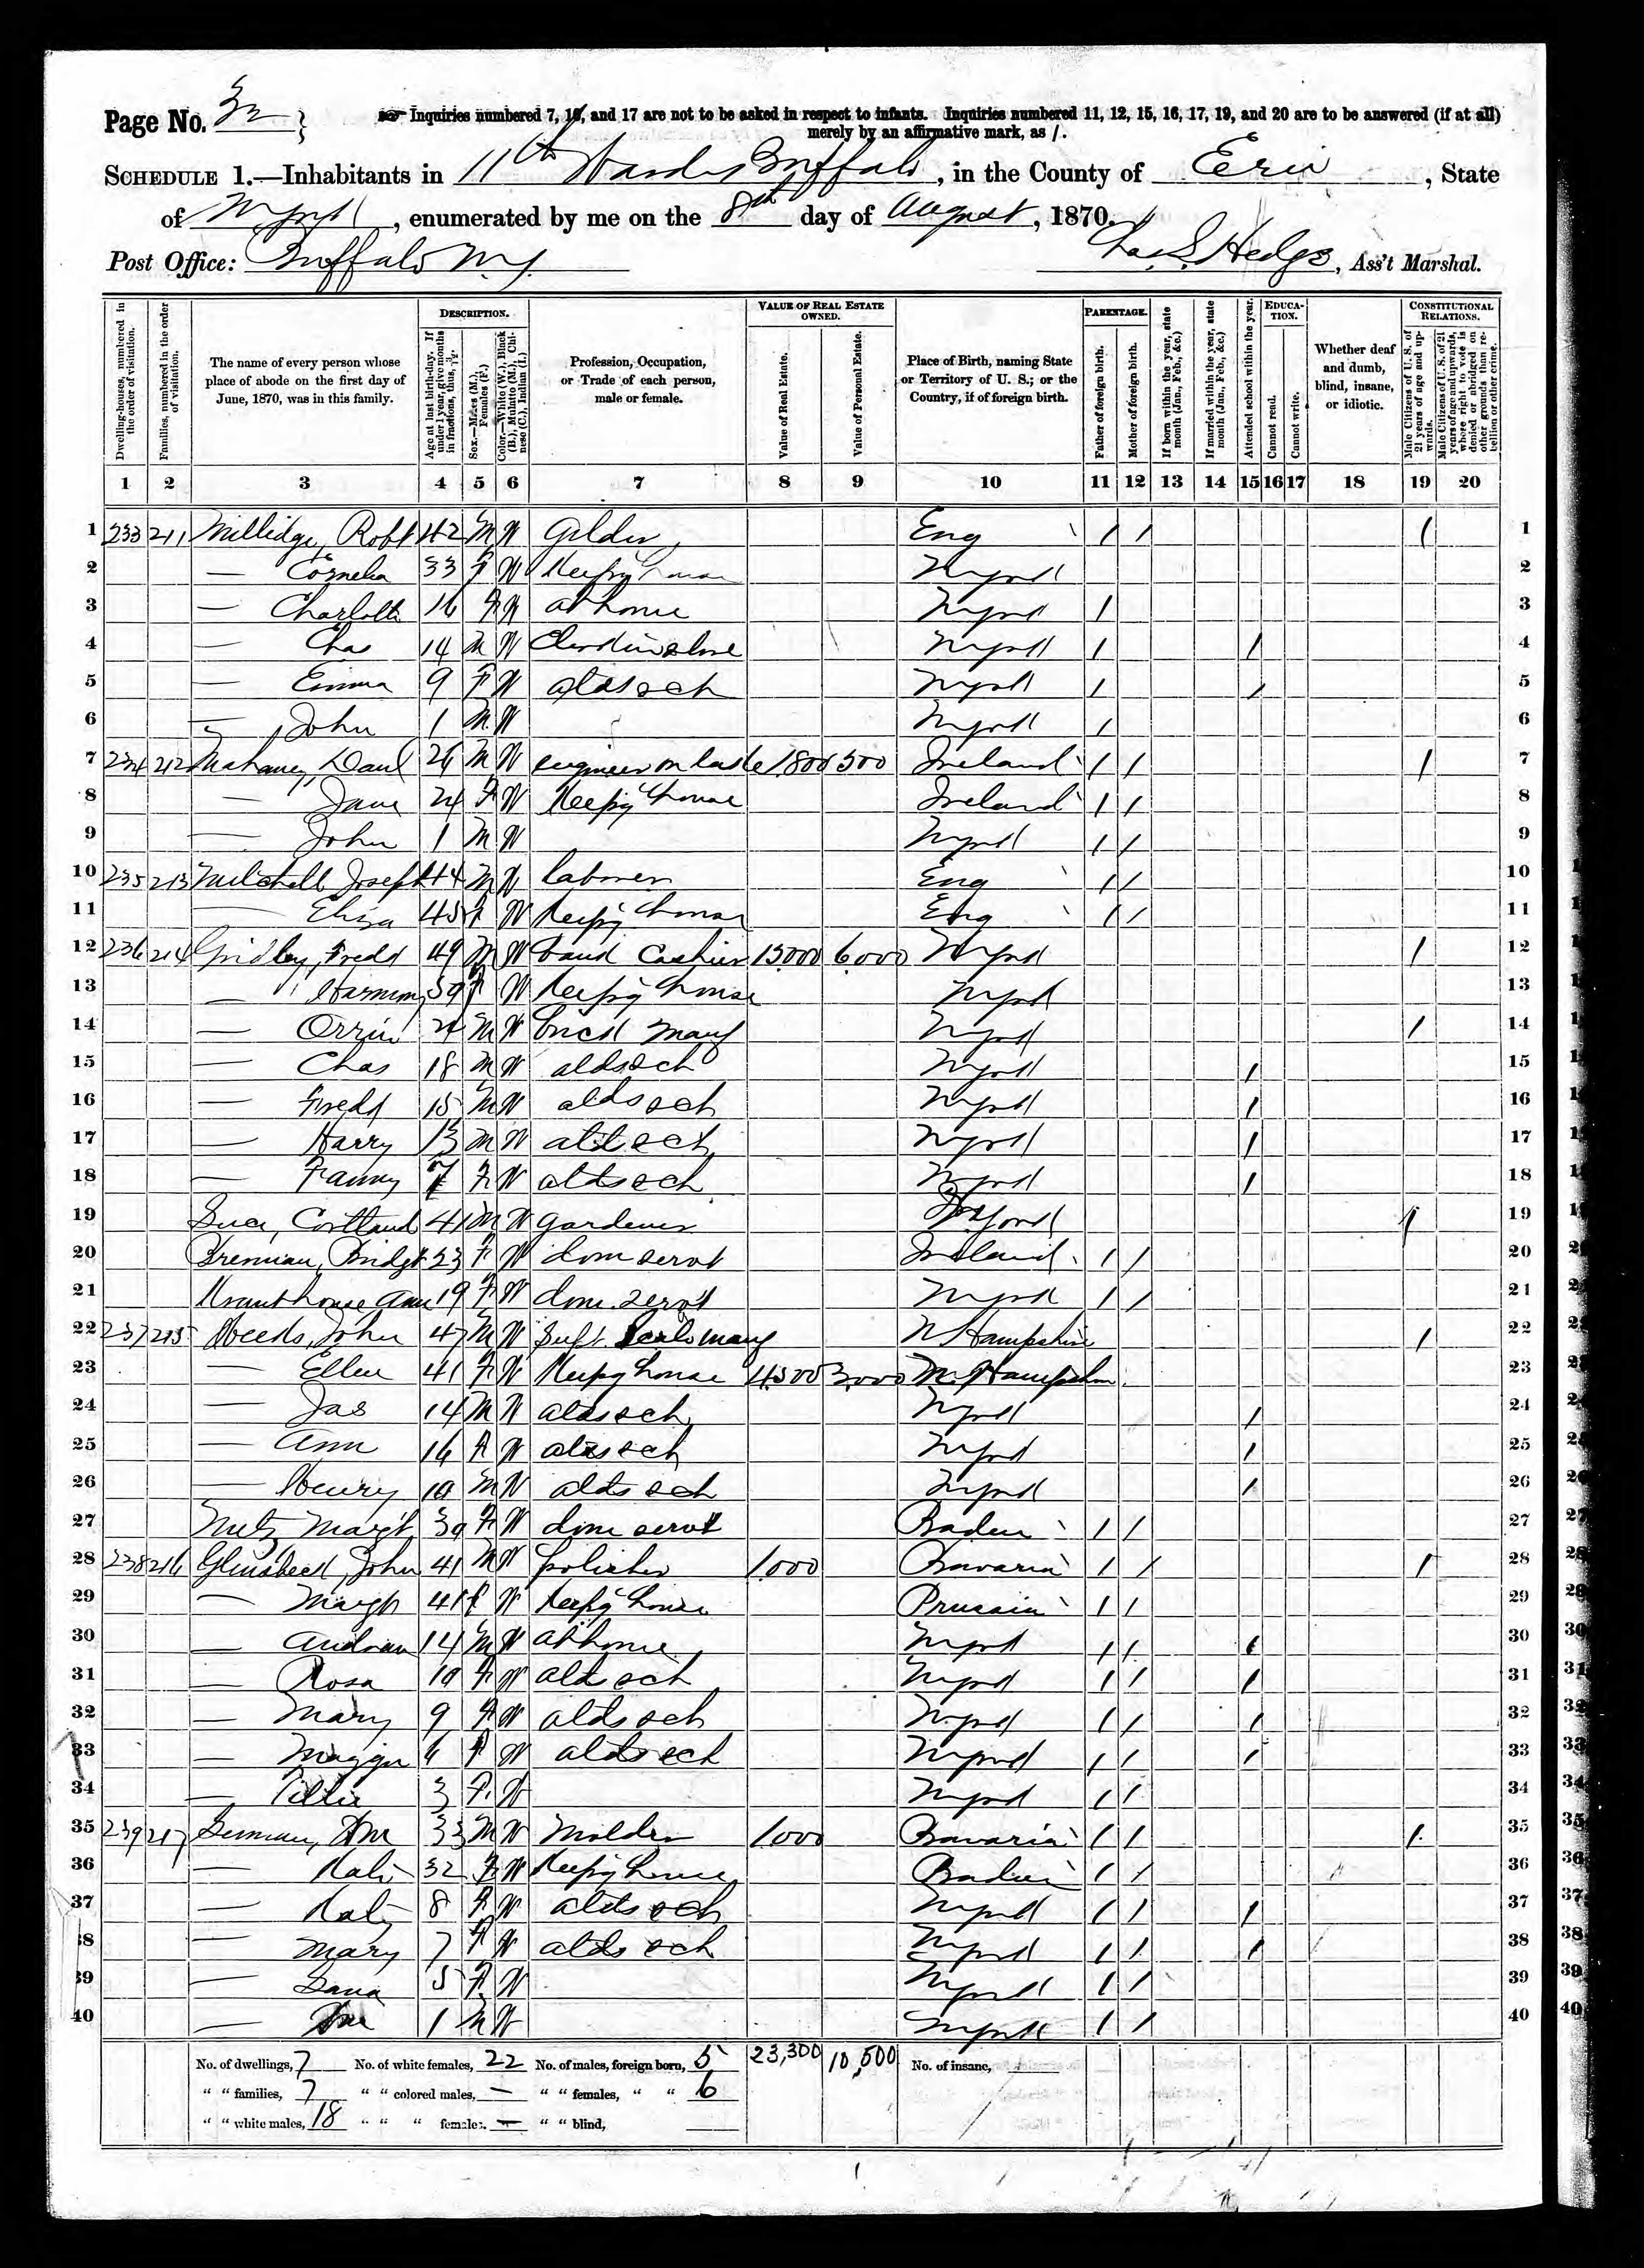 Page No. 32
Inquiries numbered 7, 16, and 17 are not to be asked in respect to infants. Inquiries numbered 11, 12, 15, 16, 17, 19, and 20 are to be answered (if at all)
merely by an affirmative mark, as /.
SCHEDULE 1.—Inhabitants in 11th Ward Buffalo, in the County of Erie, State
of N York, enumerated by me on the 8th day of August, 1870.
Post Office: Buffalo N.Y. Chas S. Hedge, Ass't Marshal.
Dwelling-houses, numbered in the order of visitation.
Families, numbered in the order of visitation.
The name of every person whose place of abode on the first day of June, 1870, was in this family.
DESCRIPTION.
Age at last birth-day. If under 1 year, give months in fractions, thus, 3/12.
Sex.—Males (M.), Females (F.)
Color.—White (W.), Black (B.), Mulatto (M.), Chinese (C.), Indian (I.)
Profession, Occupation, or Trade of each person, male or female.
VALUE OF REAL ESTATE OWNED.
Value of Real Estate.
Value of Personal Estate.
Place of Birth, naming State or Territory of U. S.; or the Country, if of foreign birth.
PARENTAGE.
Father of foreign birth.
Mother of foreign birth.
If born within the year, state month (Jan., Feb., &c.)
If married within the year, state month (Jan., Feb., &c.)
Attended school within the year.
EDUCATION.
Cannot read.
Cannot write.
Whether deaf and dumb, blind, insane, or idiotic.
CONSTITUTIONAL RELATIONS.
Male Citizens of U. S. of 21 years of age and upwards.
Male Citizens of U. S. of 21 years of age and upwards, where right to vote is denied or abridged on other grounds than rebellion or other crime.
1 2 3 4 5 6 7 8 9 10 11 12 13 14 15 16 17 18 19 20
1 233 211 Millidge, Robt 42 M W Gilder Eng / / / 1
2 — Cornelia 33 F W Keepg house N York 2
3 — Charlotte 16 F W at home N York / 3
4 — Chas 14 M W Clerk in store N York / / 4
5 — Emma 9 F W atds sch N York / / 5
6 — John 1 M W N York / 6
7 234 212 Mahaney, Danl 26 M W engineer on lake 1800 500 Ireland / / / 7
8 — Jane 24 F W Keepg house Ireland / / 8
9 — John 1 M W N York / / 9
10 235 213 Mitchell Joseph 44 M W laborer Eng / / 10
11 — Eliza 45 F W Keepg house Eng / / 11
12 236 214 Gridley, Fredd 49 M W bank Cashier 15000 6000 N York / 12
13 — Harmony 39 F W Keepg house N York 13
14 — Orrin 24 M W brick manf N York / 14
15 — Chas 18 M W atds sch N York / 15
16 — Fredd 15 M W atds sch N York / 16
17 — Harry 13 M W atds sch N York / 17
18 — Fanny 7 F W atds sch N York / 18
19 Cortland 41 M W gardener N York / 19
20 Brennan, Bridgt 23 F W dom servt Ireland / / 20
21 Krauthouse Ann 19 F W dom. servt N York / / 21
22 237 215 Weeds, John 47 M W Supt. Scale manf N Hampshire / 22
23 — Ellen 41 F W Keepg house 4500 3000 N. Hampshire 23
24 — Jas 14 M W atds sch N York / 24
25 — Ann 16 F W atds sch N York / 25
26 — Henry 10 M W atds sch N York / 26
27 Metz Margt 30 F W dom servt Baden / / 27
28 238 216 John 41 M W polisher 1,000 Bavaria / / / 28
29 — Margt 41 F W Keepg house Prussia / / 29
30 — Andrew 14 M W at home N York / / / 30
31 — Rosa 10 F W atds sch N York / / / 31
32 — Mary 9 F W atds sch N York / / / 32
33 — Maggie 6 F W atds sch N York / / / 33
34 — Tillie 3 F W N York / / 34
35 239 217 German, Wm 33 M W Molder 1,000 Bavaria / / / 35
36 — Kate 32 F W Keepg house Baden / / 36
37 — Katy 8 F W atds sch N York / / / 37
38 — Mary 7 F W atds sch N York / / / 38
39 — 5 F W N York / / 39
40 — Wm 1 M W N York / / 40
No. of dwellings, 7 No. of white females, 22 No. of males, foreign born, 5 23,300 10,500 No. of insane,
" " families, 7 " " colored males, — " " females, " " 6
" " white males, 18 " " " females, — " " blind,